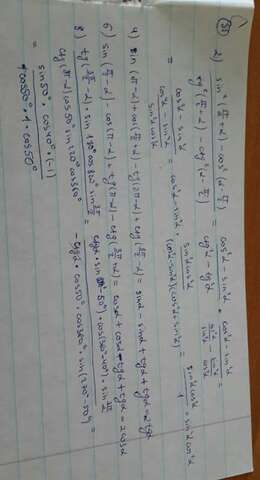 35
2) sin²(π/2+α) - cos²(α-π/2) / tg²(π/2+α) - ctg²(α-π/2) = cos²α - sin²α / ctg²α - tg²α = cos²α - sin²α / cos²α/sin²α - sin²α/cos²α =
= cos²α - sin²α / cos⁴α - sin⁴α / sin²α cos²α = cos²α - sin²α · sin²α cos²α / (cos²α-sin²α)(cos²α+sin²α) = sin²α cos²α / 1 = sin²α cos²α
4) sin (π-α)+cos(π/2+α) - tg(2π-α) + ctg(3π/2-α) = sinα - sinα + tgα + tgα = 2tgα
6) sin(π/2-α) - cos(π-α) + tg(π-α) - ctg(3π/2+α) = cosα + cosα - tgα + tgα = 2cosα
8) tg(3π/2-α) · sin 130° cos 320° sin 3π/2 / ctg(π-α) cos 50° sin 220° cos 360° = ctgα · sin(180°-50°) · cos(360°-40°) · sin 3π/2 / -ctgα · cos50° · cos360° · sin(270°-50°) =
= sin50° · cos40° · (-1) / cos50° · 1 · cos50°